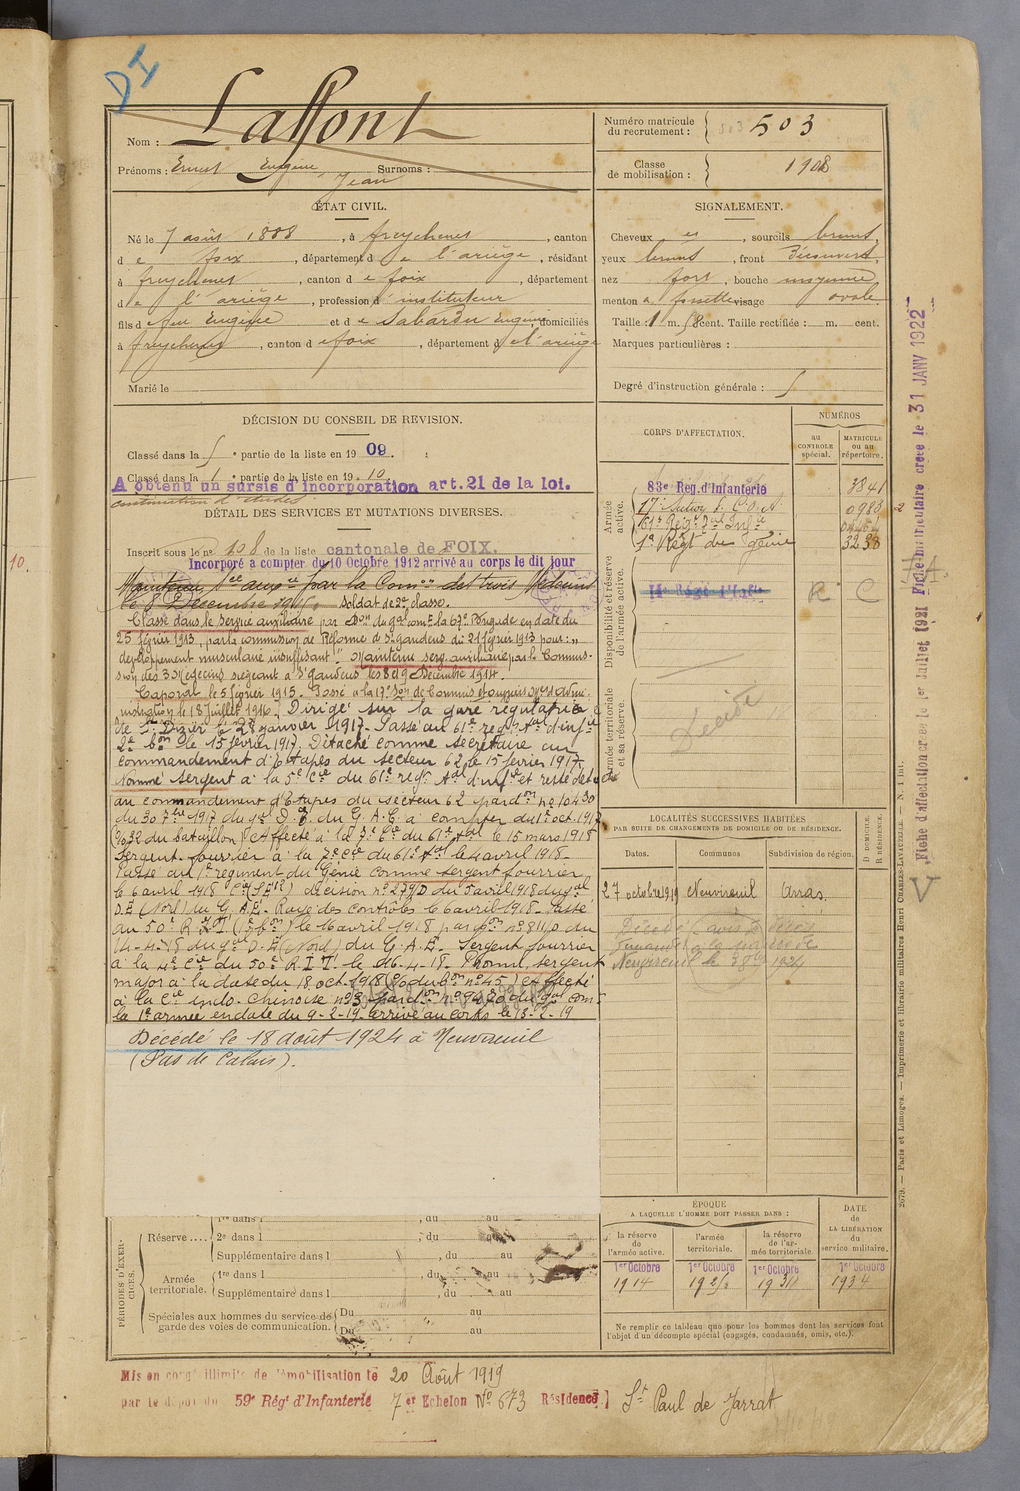 DI
Nom : Laffont
Prénoms : Ernest Eugène Jean Surnoms :
ÉTAT CIVIL.
Né le 7 août 1888, à freychenet, canton
de foix, département de l'ariège, résidant
à freychenet, canton de foix, département
de l'ariège, profession d'instituteur
fils de feu Eugène et de Sabardu Eugénie, domiciliés
à freychenet, canton de foix, département de l'ariège
Marié le
Numéro matricule du recrutement : 503
Classe de mobilisation : 1908
SIGNALEMENT.
Cheveux et, sourcils bruns,
yeux bruns, front découvert,
nez fort, bouche moyenne,
menton à fossette visage ovale.
Taille : 1 m. 58 cent. Taille rectifiée : m. cent.
Marques particulières :
Degré d'instruction générale :
DÉCISION DU CONSEIL DE REVISION.
Classé dans la partie de la liste en 1909.
Classé dans la 1e partie de la liste en 1910
A obtenu un sursis d'incorporation art. 21 de la loi.
continuation d'études
DÉTAIL DES SERVICES ET MUTATIONS DIVERSES.
Inscrit sous le no 108 de la liste cantonale de FOIX.
Incorporé à compter du 10 Octobre 1912 arrivé au corps le dit jour
Maintenu Sce auxre par la Comon des trois Médecins
le 8 Décembre 1914. soldat de 2e classe.
Classé dans le service auxiliaire par Don du gal comt la 67e Brigade en date du
25 février 1913, par la commission de Réforme de St gaudens du 21 février 1913 pour : "
développement musculaire insuffisant". Maintenu serv. auxiliaire par la Commis-
sion des 3 Médecins siégeant à St Gaudens les 8 et 9 Décembre 1914.
Caporal le 5 février 1915. Passé à la 17e Son de Commis et ouvriers mres d'admi-
nistration le 18 juillet 1916. Dirigé sur la gare régulatrice
de St Dizier le 28 janvier 1917. Passé au 61e régt tal d'infie
2e bon le 15 février 1917. Détaché comme secrétaire au
commandement d'Étapes du secteur 62 le 15 février 1917.
Nommé sergent à la 5e Cie du 61e régt tal d'infie et resté détaché
au commandement d'Étapes du secteur 62 par don no 10430
du 30 7bre 1917 du gal D.E. du G.A.E. à compter du 1er oct. 1917
(no 32 du bataillon) Affecté à la 7e Cie du 61e tal le 15 mars 1918
Sergent fourrier à la 7e Cie du 61e tal le 4 avril 1918.
Passé au 1er régiment du Génie comme sergent fourrier
le 6 avril 1918 décision no 279/D du 5 avril 1918 du gal
D.E (Nord) du G.A.E. Rayé des contrôles le 6 avril 1918. Passé
au 50e R.I.T. le 16 avril 1918 par don no 811/D du
14-4-18 du gal D.E (Nord) du G.A.E. Sergent fourrier
à la 4e Cie du 50e R.I.T. le 16.4.18. Promu sergent
major à la date du 18 oct. 1918 (O/ du bon no 45) Affecté
à la Cie indo-chinoise no 3 par don no 9420 du gal comt
la 1e armée en date du 9-2-19. arrivé au corps le 13-2-19
Décédé le 18 août 1924 à Neuvireuil
(Pas de Calais).
CORPS D'AFFECTATION.
NUMÉROS
au CONTROLE spécial.
MATRICULE ou au répertoire.
Armée active.
83e Rég. d'Infanterie 3841
17e Section de C.O.A. 0988
61e Régt tal Infie 04464
1er Régt du génie 3238
Disponibilité et réserve de l'armée active.
R C
Armée territoriale et sa réserve.
Décédé
LOCALITÉS SUCCESSIVES HABITÉES
PAR SUITE DE CHANGEMENTS DE DOMICILE OU DE RÉSIDENCE.
Dates. Communes Subdivision de région. D DOMICILE. R RÉSIDENCE.
27 octobre 1919 Neuvireuil Arras
ÉPOQUE
A LAQUELLE L'HOMME DOIT PASSER DANS :
la réserve de l'armée active.
l'armée territoriale.
la réserve de l'armée territoriale.
DATE de LA LIBÉRATION du service militaire.
1er Octobre 1er Octobre 1er Octobre 1er Octobre
1914 1934
Ne remplir ce tableau que pour les hommes dont les services font
l'objet d'un décompte spécial (engagés, condamnés, omis, etc.).
PÉRIODES D'EXERCICES.
Réserve....
1re dans l , du au
2e dans l , du au
Supplémentaire dans l , du au
Armée territoriale.
1re dans l , du au
Supplémentaire dans l , du au
Spéciales aux hommes du service de garde des voies de communication.
Du au
Du au
Mis en congé illimité de démobilisation le 20 Août 1919
par le dépôt du 59e Régt d'Infanterie 7er Echelon No 673 Résidence St Paul de Jarrat
Fiche d'affectation créée le 1er Juillet 1921 Fiche matriculaire créée le 31 JANV 1922
2679. — Paris et Limoges. — Imprimerie et librairie militaires Henri CHARLES-LAVAUZELLE. — N. 1 int.
10.